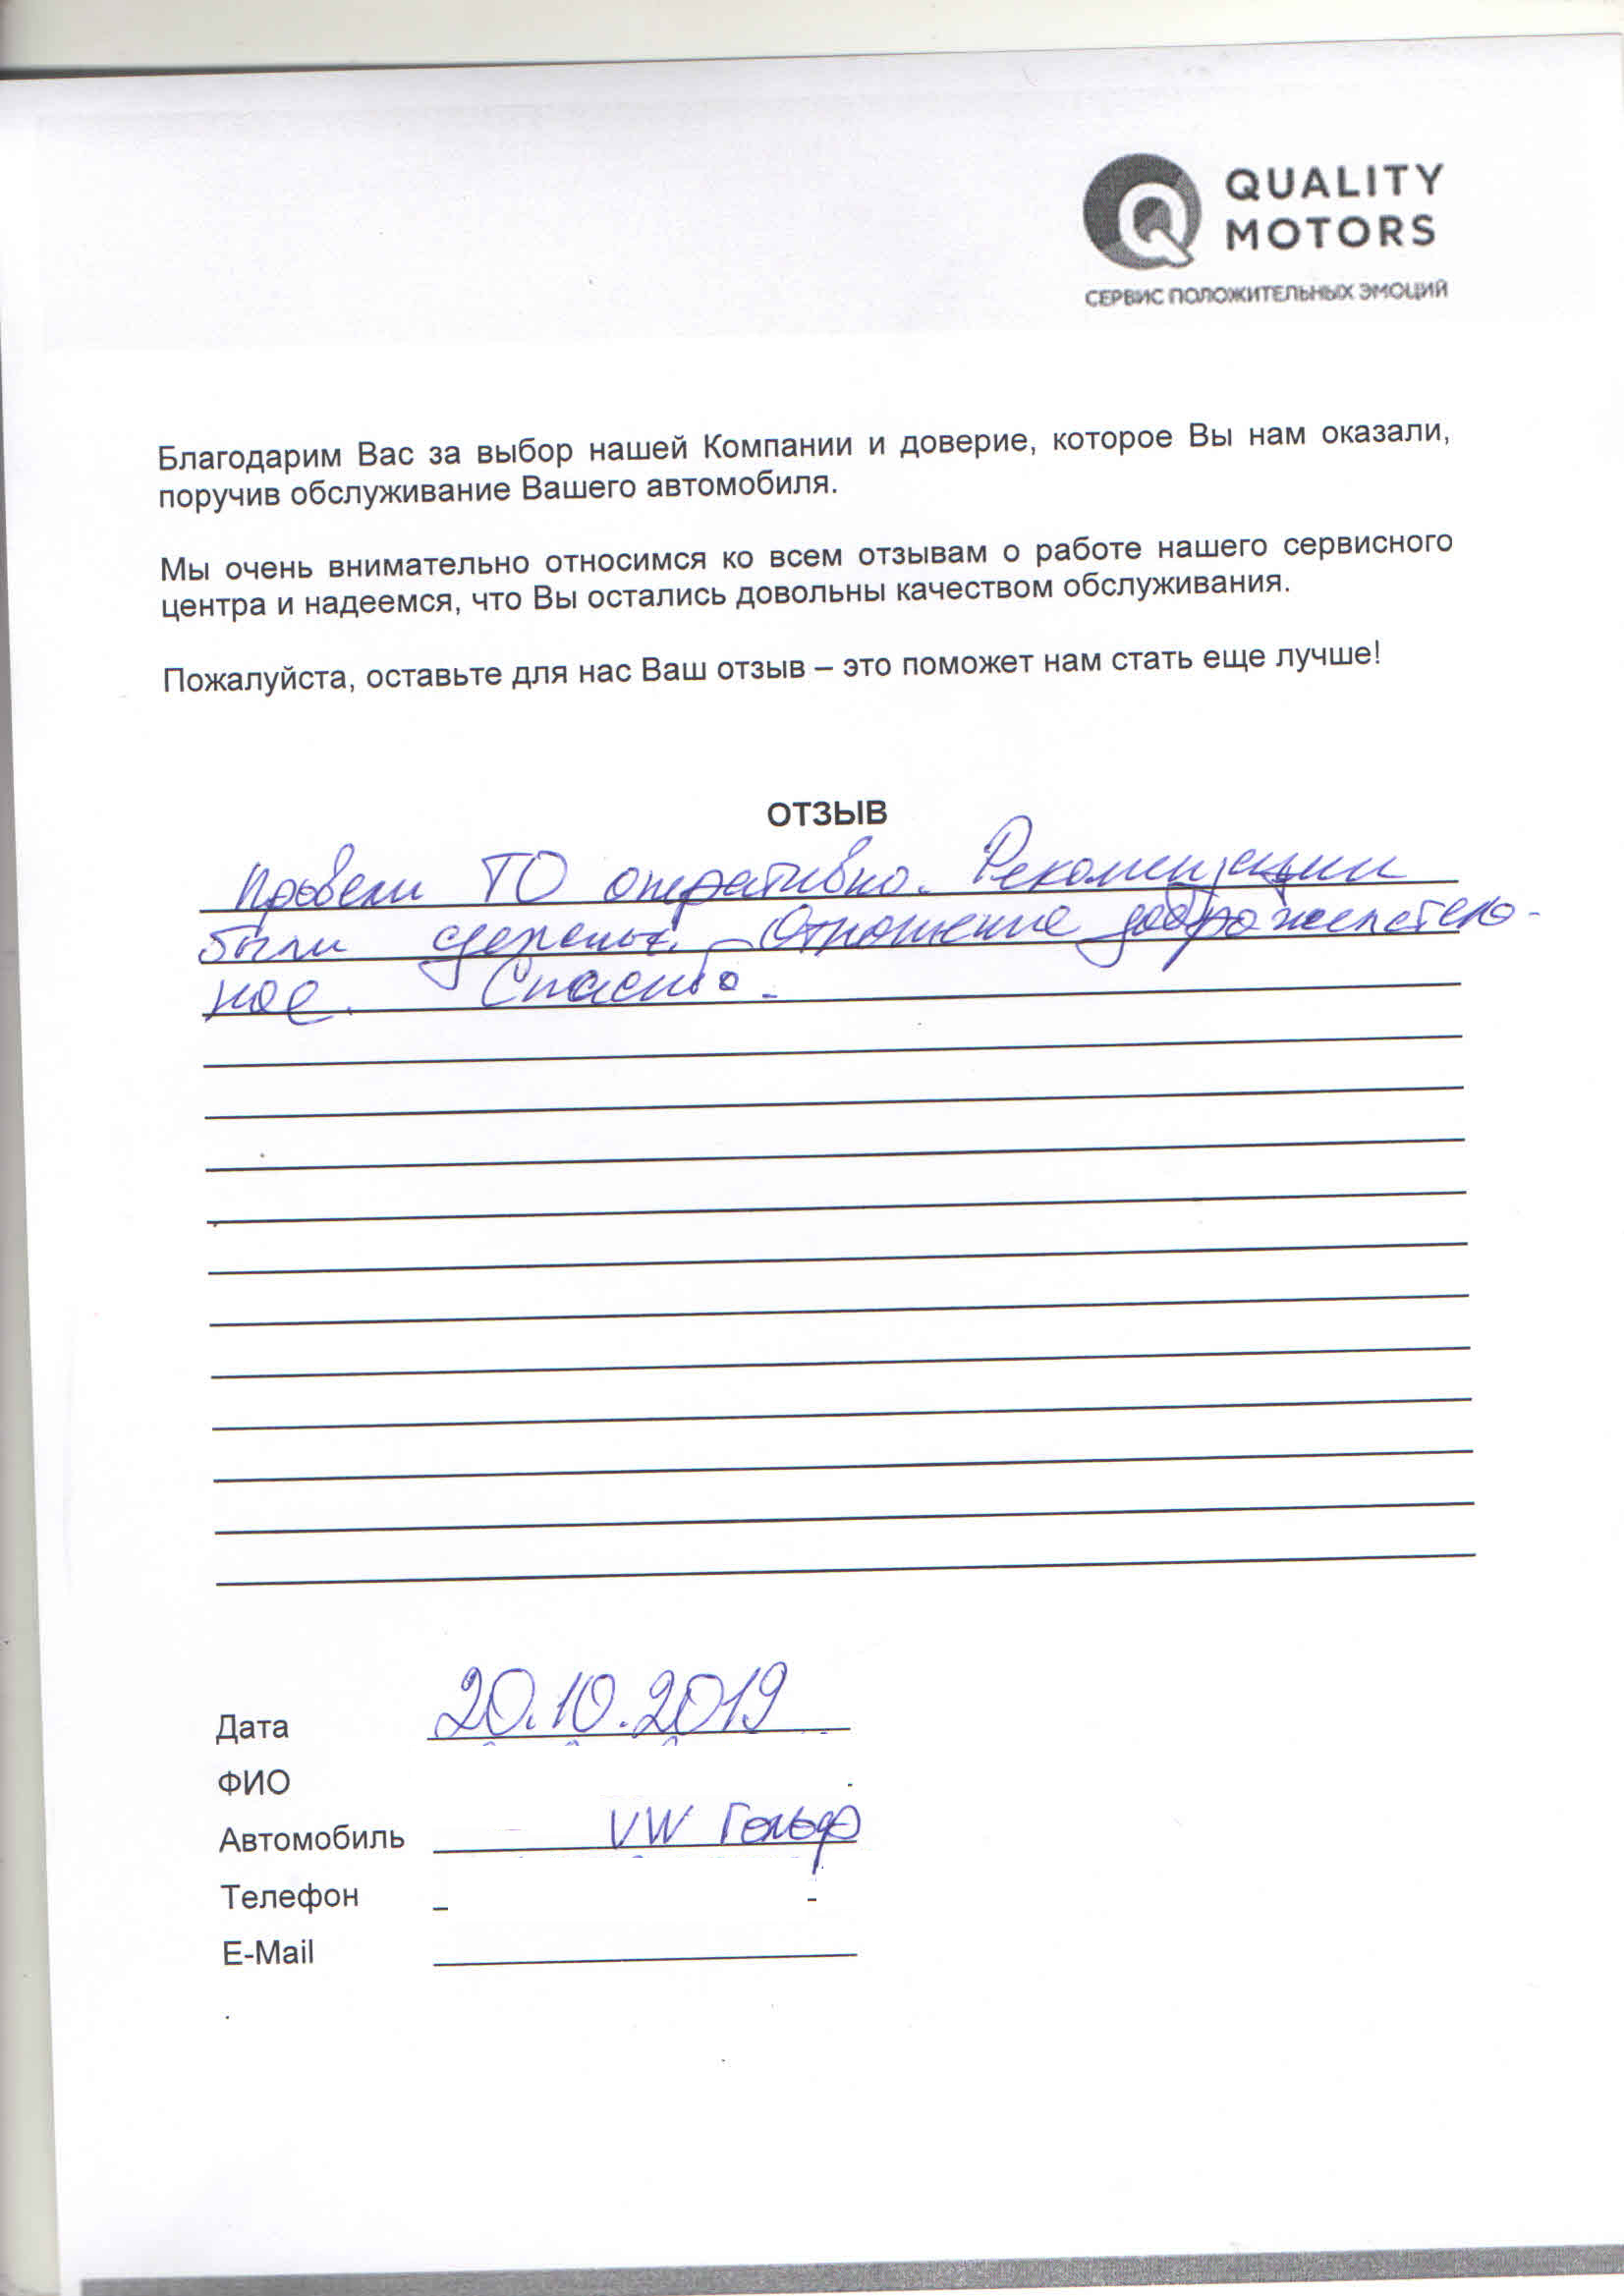 QUALITY
MOTORS
СЕРВИС ПОЛОЖИТЕЛЬНЫХ ЭМОЦИЙ
Благодарим Вас за выбор нашей Компании и доверие, которое Вы нам оказали,
поручив обслуживание Вашего автомобиля.
Мы очень внимательно относимся ко всем отзывам о работе нашего сервисного
центра и надеемся, что Вы остались довольны качеством обслуживания.
Пожалуйста, оставьте для нас Ваш отзыв – это поможет нам стать еще лучше!
ОТЗЫВ
Провели ТО оперативно. Рекомендации
были сделаны. Отношение доброжелатель-
ное. Спасибо.
Дата 20.10.2019
ФИО
Автомобиль VW Гольф
Телефон
E-Mail